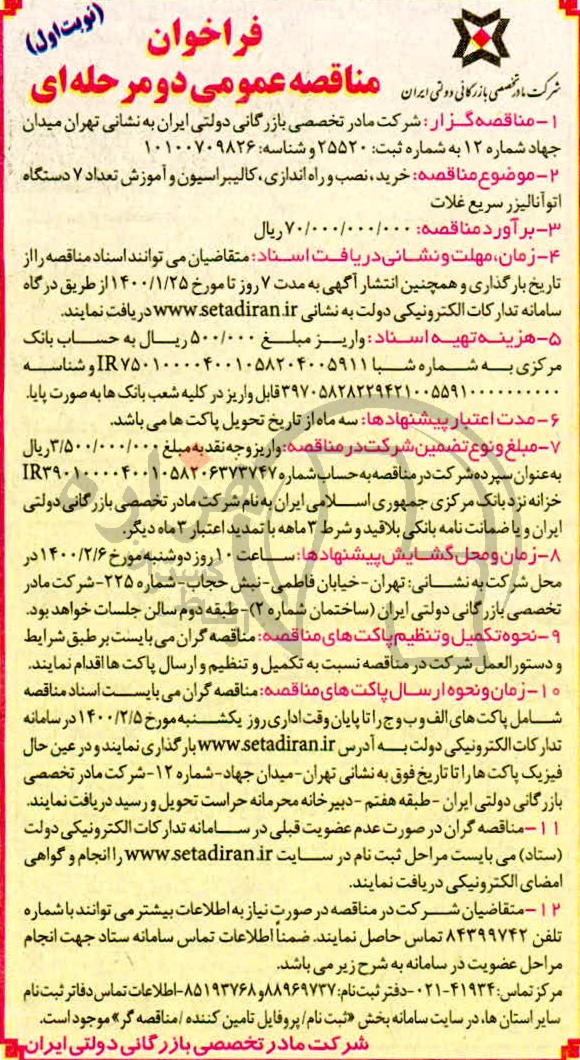 (نوبت اول)
فراخوان
مناقصه عمومی دو مرحله ای
شرکت مادر تخصصی بازرگانی دولتی ایران
۱-مناقصه گزار: شرکت مادر تخصصی بازرگانی دولتی ایران به نشانی تهران میدان
جهاد شماره ۱۲ به شماره ثبت: ۲۵۵۲۰ و شناسه: ۱۰۱۰۰۷۰۹۸۲۶
۲-موضوع مناقصه: خرید، نصب و راه اندازی، کالیبراسیون و آموزش تعداد ۷ دستگاه
اتوآنالیزر سریع غلات
۳-برآورد مناقصه: ۷۰/۰۰۰/۰۰۰/۰۰۰ ریال
۴-زمان، مهلت و نشانی دریافت اسناد: متقاضیان می توانند اسناد مناقصه را از
تاریخ بارگذاری و همچنین انتشار آگهی به مدت ۷ روز تا مورخ ۱۴۰۰/۱/۲۵ از طریق درگاه
سامانه تدارکات الکترونیکی دولت به نشانی www.setadiran.ir دریافت نمایند.
۵-هزینه تهیه اسناد: واریز مبلغ ۵۰۰/۰۰۰ ریال به حساب بانک
مرکزی به شماره شبا IR۷۵۰۱۰۰۰۰۴۰۰۱۰۵۸۲۰۴۰۰۵۹۱۱ و شناسه
۳۹۷۰۵۸۲۸۲۲۹۴۲۱۰۰۵۵۹۱۰۰۰۰۰۰۰۰۰۰ قابل واریز در کلیه شعب بانک ها به صورت پایا.
۶-مدت اعتبار پیشنهادها: سه ماه از تاریخ تحویل پاکت ها می باشد.
۷-مبلغ و نوع تضمین شرکت در مناقصه: واریز وجه نقد به مبلغ ۳/۵۰۰/۰۰۰/۰۰۰ ریال
به عنوان سپرده شرکت در مناقصه به حساب شماره IR۳۹۰۱۰۰۰۰۴۰۰۱۰۵۸۲۰۶۳۷۳۷۴۷
خزانه نزد بانک مرکزی جمهوری اسلامی ایران به نام شرکت مادر تخصصی بازرگانی دولتی
ایران و یا ضمانت نامه بانکی بلاقید و شرط ۳ ماهه با تمدید اعتبار ۳ ماه دیگر.
۸-زمان و محل گشایش پیشنهادها: ساعت ۱۰ روز دوشنبه مورخ ۱۴۰۰/۲/۶ در
محل شرکت به نشانی: تهران-خیابان فاطمی-نبش حجاب-شماره ۲۲۵-شرکت مادر
تخصصی بازرگانی دولتی ایران (ساختمان شماره ۲)-طبقه دوم سالن جلسات خواهد بود.
۹-نحوه تکمیل و تنظیم پاکت های مناقصه: مناقصه گران می بایست بر طبق شرایط
و دستورالعمل شرکت در مناقصه نسبت به تکمیل و تنظیم و ارسال پاکت ها اقدام نمایند.
۱۰-زمان و نحوه ارسال پاکت های مناقصه: مناقصه گران می بایست اسناد مناقصه
شامل پاکت های الف و ب و ج را تا پایان وقت اداری روز یکشنبه مورخ ۱۴۰۰/۲/۵ در سامانه
تدارکات الکترونیکی دولت به آدرس www.setadiran.ir بارگذاری نمایند و در عین حال
فیزیک پاکت ها را تا تاریخ فوق به نشانی تهران-میدان جهاد-شماره ۱۲-شرکت مادر تخصصی
بازرگانی دولتی ایران -طبقه هفتم -دبیرخانه محرمانه حراست تحویل و رسید دریافت نمایند.
۱۱-مناقصه گران در صورت عدم عضویت قبلی در سامانه تدارکات الکترونیکی دولت
(ستاد) می بایست مراحل ثبت نام در سایت www.setadiran.ir را انجام و گواهی
امضای الکترونیکی دریافت نمایند.
۱۲-متقاضیان شرکت در مناقصه در صورت نیاز به اطلاعات بیشتر می توانند با شماره
تلفن ۸۴۳۹۹۷۴۲ تماس حاصل نمایند. ضمناً اطلاعات تماس سامانه ستاد جهت انجام
مراحل عضویت در سامانه به شرح زیر می باشد.
مرکز تماس: ۴۱۹۳۴-۰۲۱-دفتر ثبت نام: ۸۸۹۶۹۷۳۷ و ۸۵۱۹۳۷۶۸-اطلاعات تماس دفاتر ثبت نام
سایر استان ها، در سایت سامانه بخش «ثبت نام/پروفایل تامین کننده/مناقصه گر» موجود است.
شرکت مادر تخصصی بازرگانی دولتی ایران